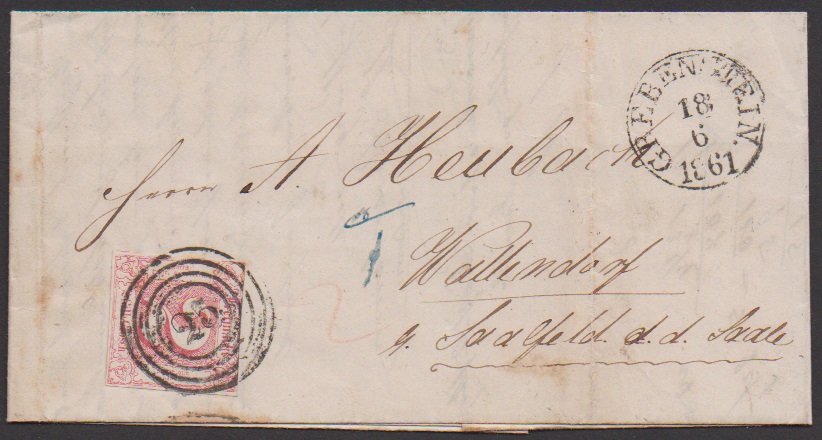 GREBENSTEIN.
18
6
1861
Herrn A. Heubach
1
Wallendorf
p. Saalfeld a. d. Saale
25
2